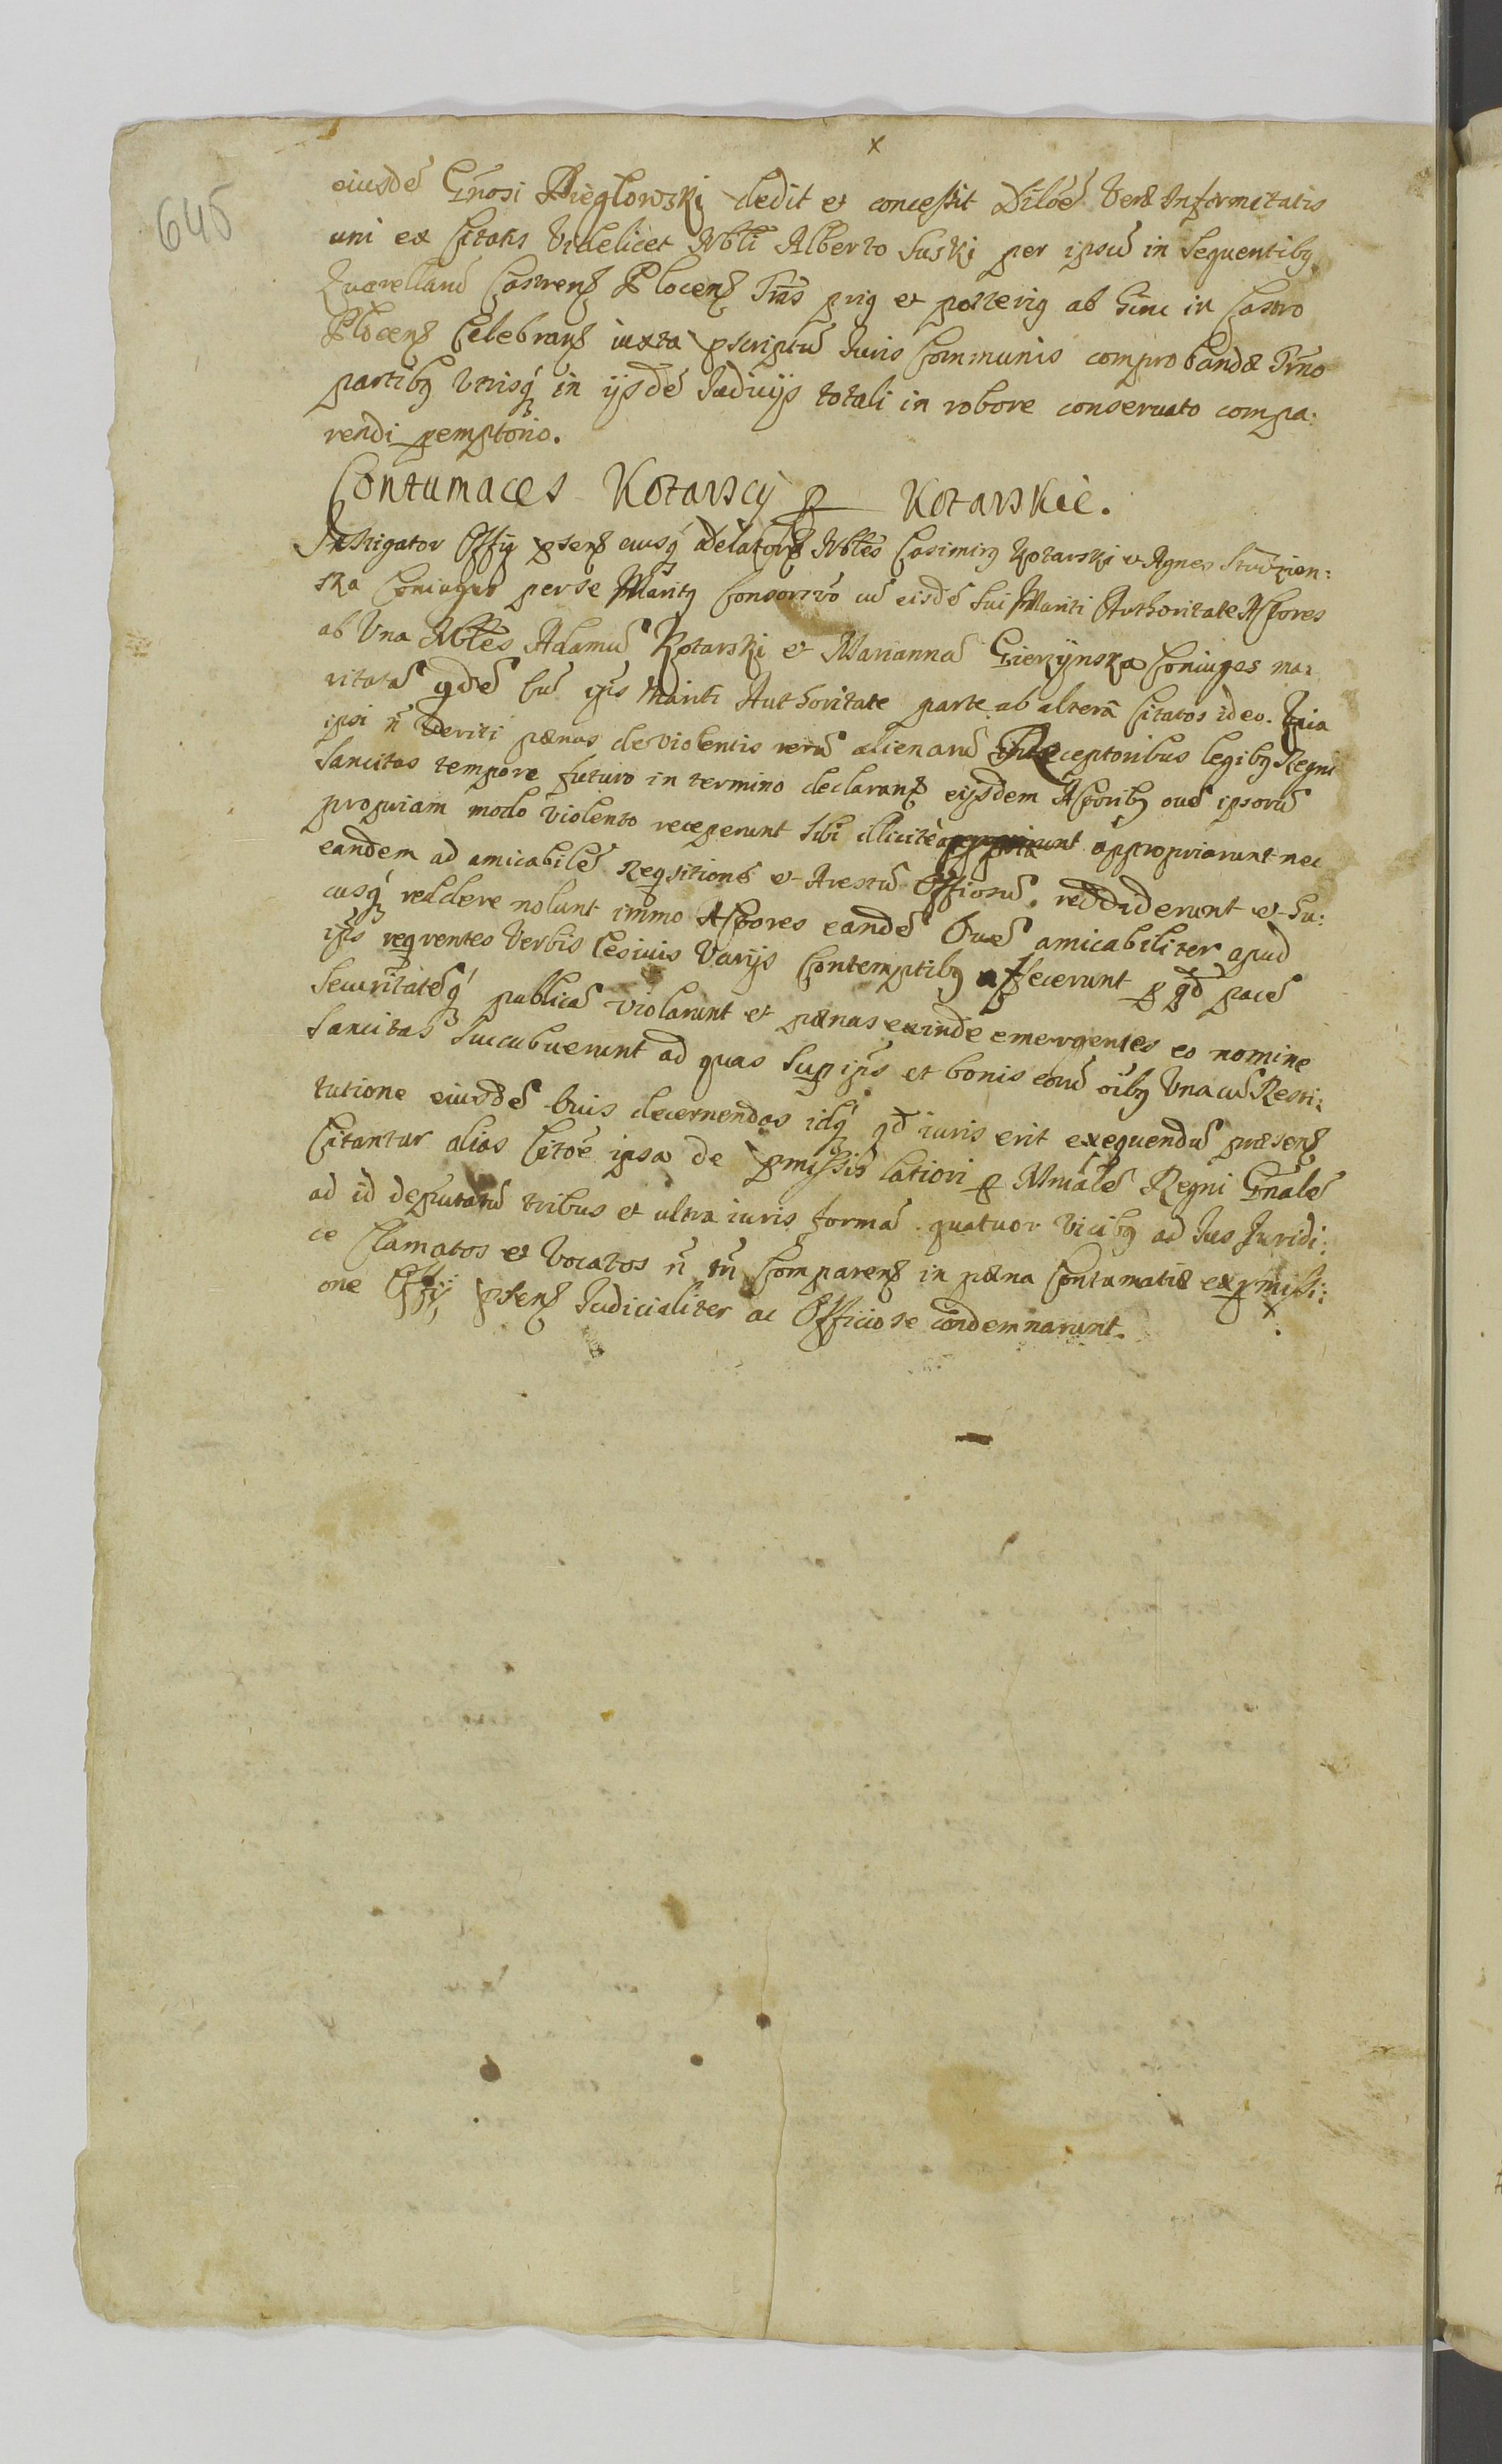 x
645
eiusdē Gn̄osi Pieglowskj dedit et concessit Dilōēm Veræ Infirmitatis
uni ex Citatis Videlicet Nb̄li Alberto Suski per ipsū in Sequentibq
Quærellarū Castrenſ Plocenſ Tr̄is prig et posterig ab hinc in Castro
Plocenſ Celebranſ iuxta pscriptū Iuris Communis comprobandæ Tr̄no
partibq Vtrisq́ in ijsdē Iudicijs totali in robore conservato compa:
rendi pemptorio.
Contumaces Kotarscy p Kotarskie.
Instigator Offy pſenſ eiusq́ delatorſ Nb̄les Casimirq Kotarski et Agnes Studzien:
ska Coniuges per se Maritq Consortē vō cū eiusdē sui Mariti Authoritate Actores
ab Una Nb̄les Adamū Kotarski et Mariannā Gierzynska Coniuges ma:
ritatā qdē Cū ip̄is Mariti Authoritate parte ab alterā Citatos ideo. Quia
ipsi n̄ Veriti pænas de violentis rerū alienarū Receptoribus legibq Regni
Sancitas tempore futuro in termino declaranſ eijsdem Actoribq ovē ipsorū
propriam modo violento receperunt sibi illicitè appropriarunt nec
eandem ad amicabilē Reqsitionē et Arestū Officiosū reddiderunt et hu:
cusq́ reddere nolunt immo Actores eandē Ovē amicabiliter apud
ip̄is reqrentes Verbis lesivis Varijs Contemptibq affecerunt p qd̄ pacē
Securitatēq́ publicā violarunt et pænas exinde emergentes eo nomine
Sancitas Succubuerunt ad quas Sup ip̄is et bonis eorū oībq Vna cū Resti:
tutione eiusdē ovis decernendas idq́ qd̄ iuris erit exequendū præsenſ
Citantur alias Citōē ipsa de pmissis latiori p Mn̄iālē Regni Gn̄alē
ad id deputatū tribus et ultra iuris formā quatuor Vicibq ad Ius Iuridi:
ce Clamatos et Vocatos n̄ tn̄ Comparenſ in pæna Contumatiæ ex pmissi:
one Offij pſenſ Iudicialiter ac Officiose condemnarunt.